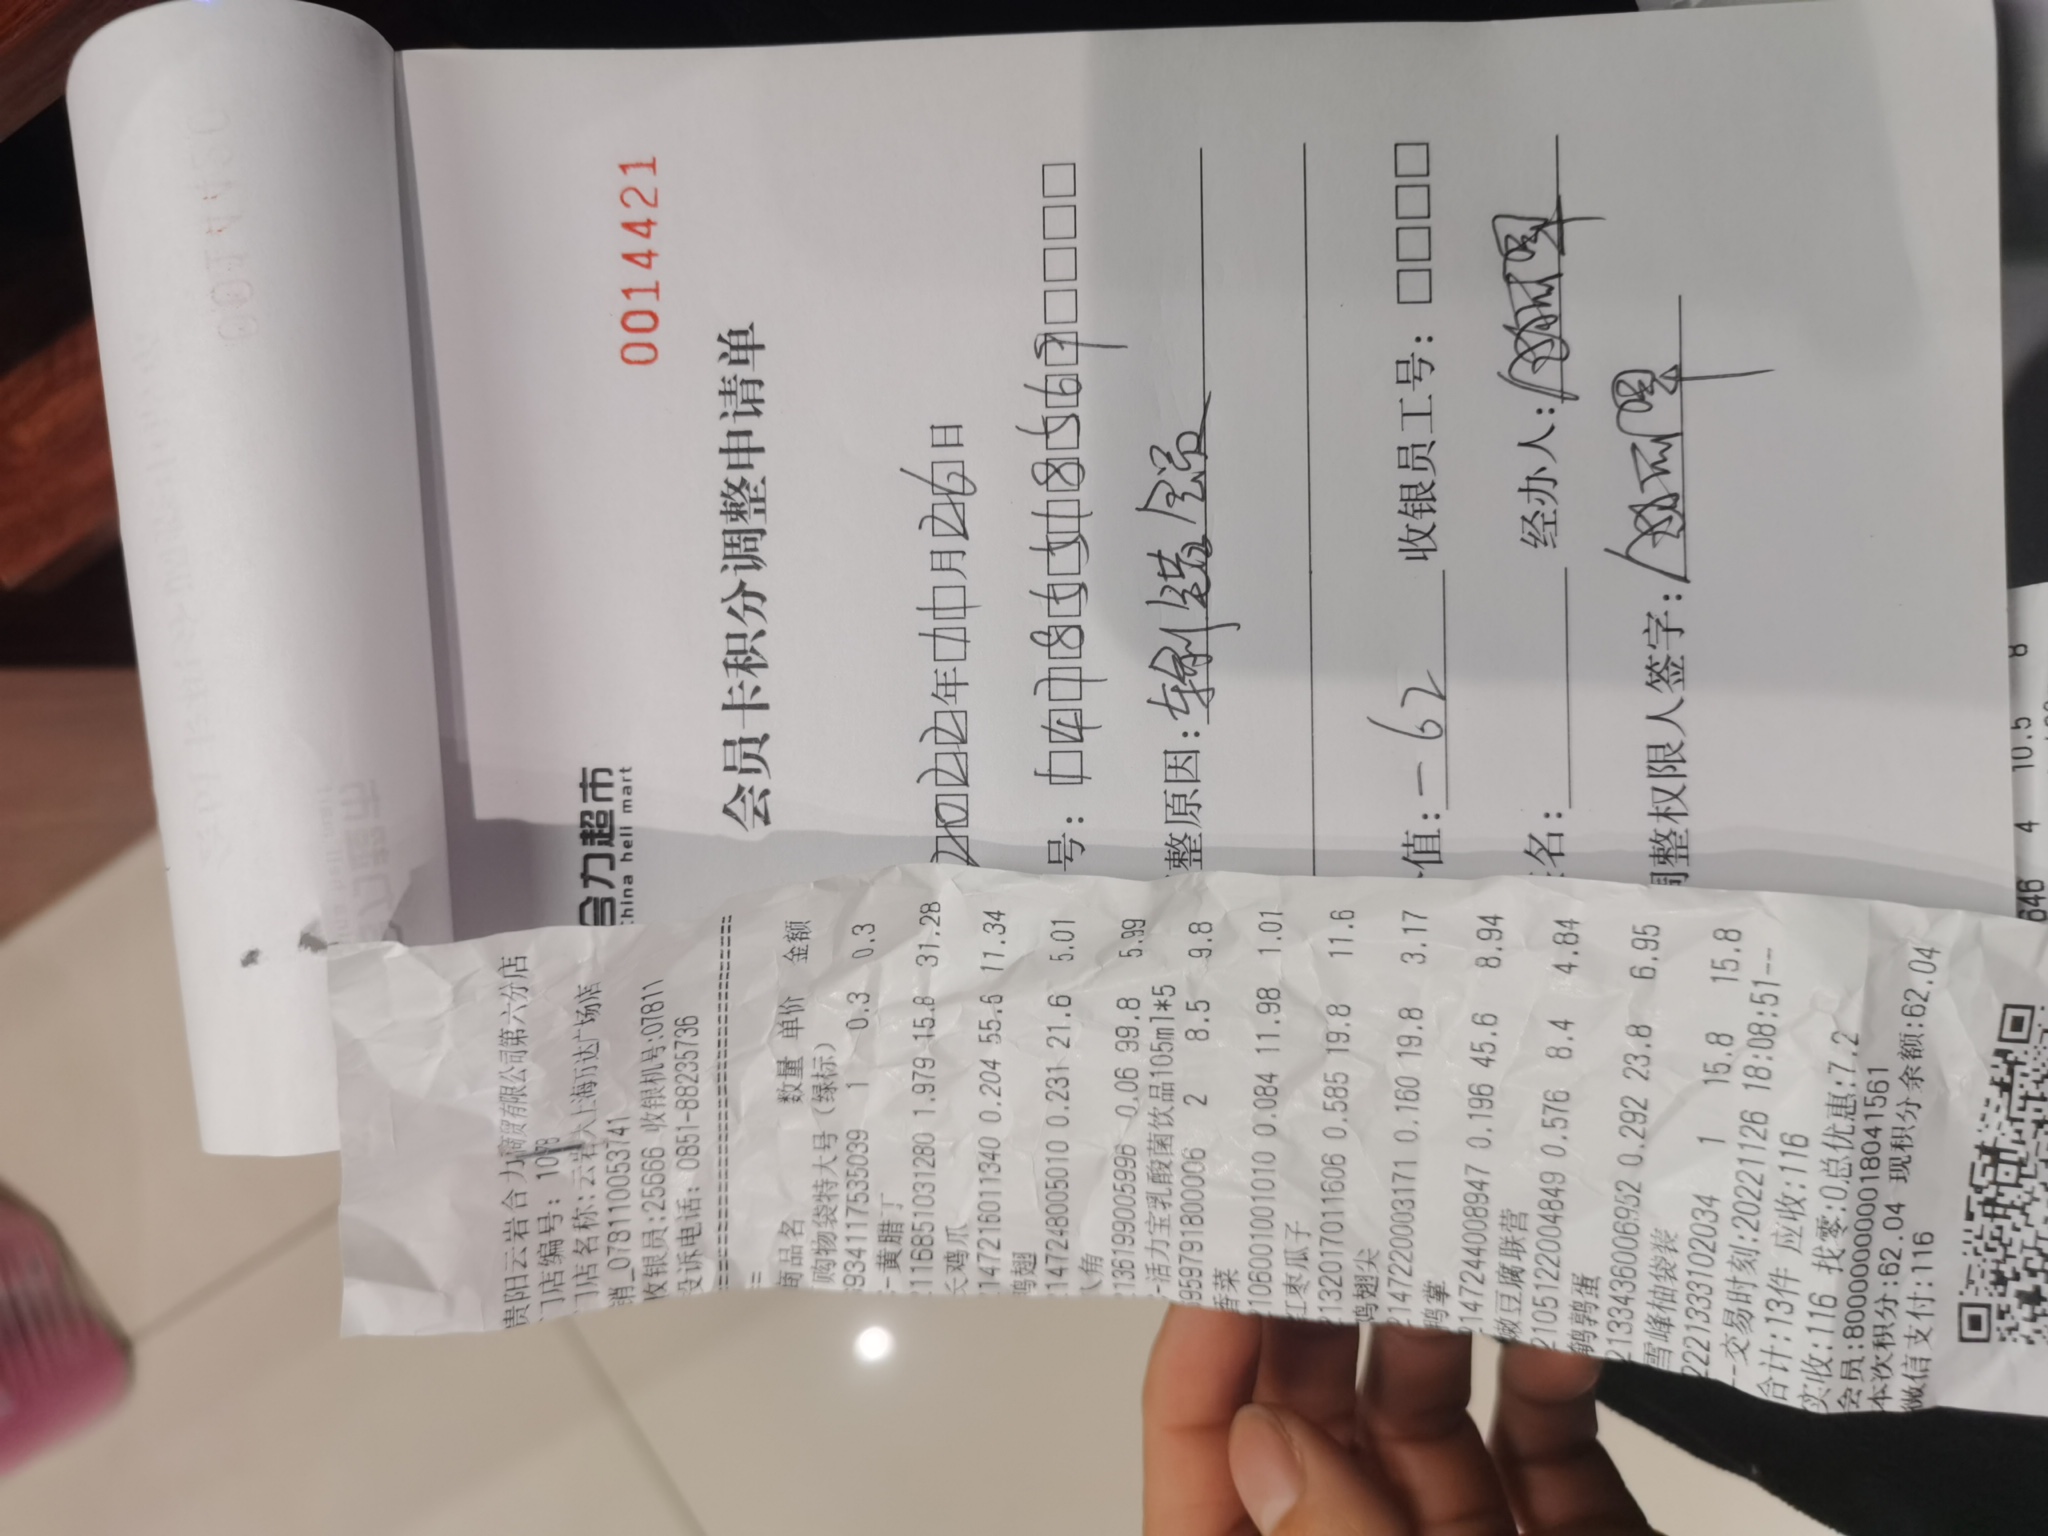 合力超市
china heli mart
0014421
会员卡积分调整申请单
2022年11月26日
号：
整原因：
值：-62 收银员工号：
名： 经办人：
调整权限人签字：
贵阳云岩合力商贸有限公司第六分店
门店编号: 1098
门店名称:云岩大上海万达广场店
销_078110053741
收银员:25666 收银机号:07811
投诉电话: 0851-88235736
商品名 数量 单价 金额
购物袋特大号（绿标）
6934117535039 1 0.3 0.3
-黄腊丁
2116851031280 1.979 15.8 31.28
鸡爪
2147216011340 0.204 55.6 11.34
鸡翅
2147248005010 0.231 21.6 5.01
八角
2136199005996 0.06 99.8 5.99
-活力宝乳酸菌饮品105ml*5
6959791800006 2 8.5 9.8
香菜
2106001001010 0.084 11.98 1.01
红枣瓜子
2132017011606 0.585 19.8 11.6
鸡翅尖
2147220003171 0.160 19.8 3.17
鸭掌
2147244008947 0.196 45.6 8.94
嫩豆腐联营
2105122004849 0.576 8.4 4.84
鹌鹑蛋
2133436006952 0.292 23.8 6.95
雪峰柚袋装
2221333102034 1 15.8 15.8
--交易时刻:20221126 18:08:51--
合计:13件 应收:116
实收:116 找零:0总优惠:7.2
会员:8000000000018041561
本次积分:62.04 现积分余额:62.04
微信支付:116
646 4 10.5 8